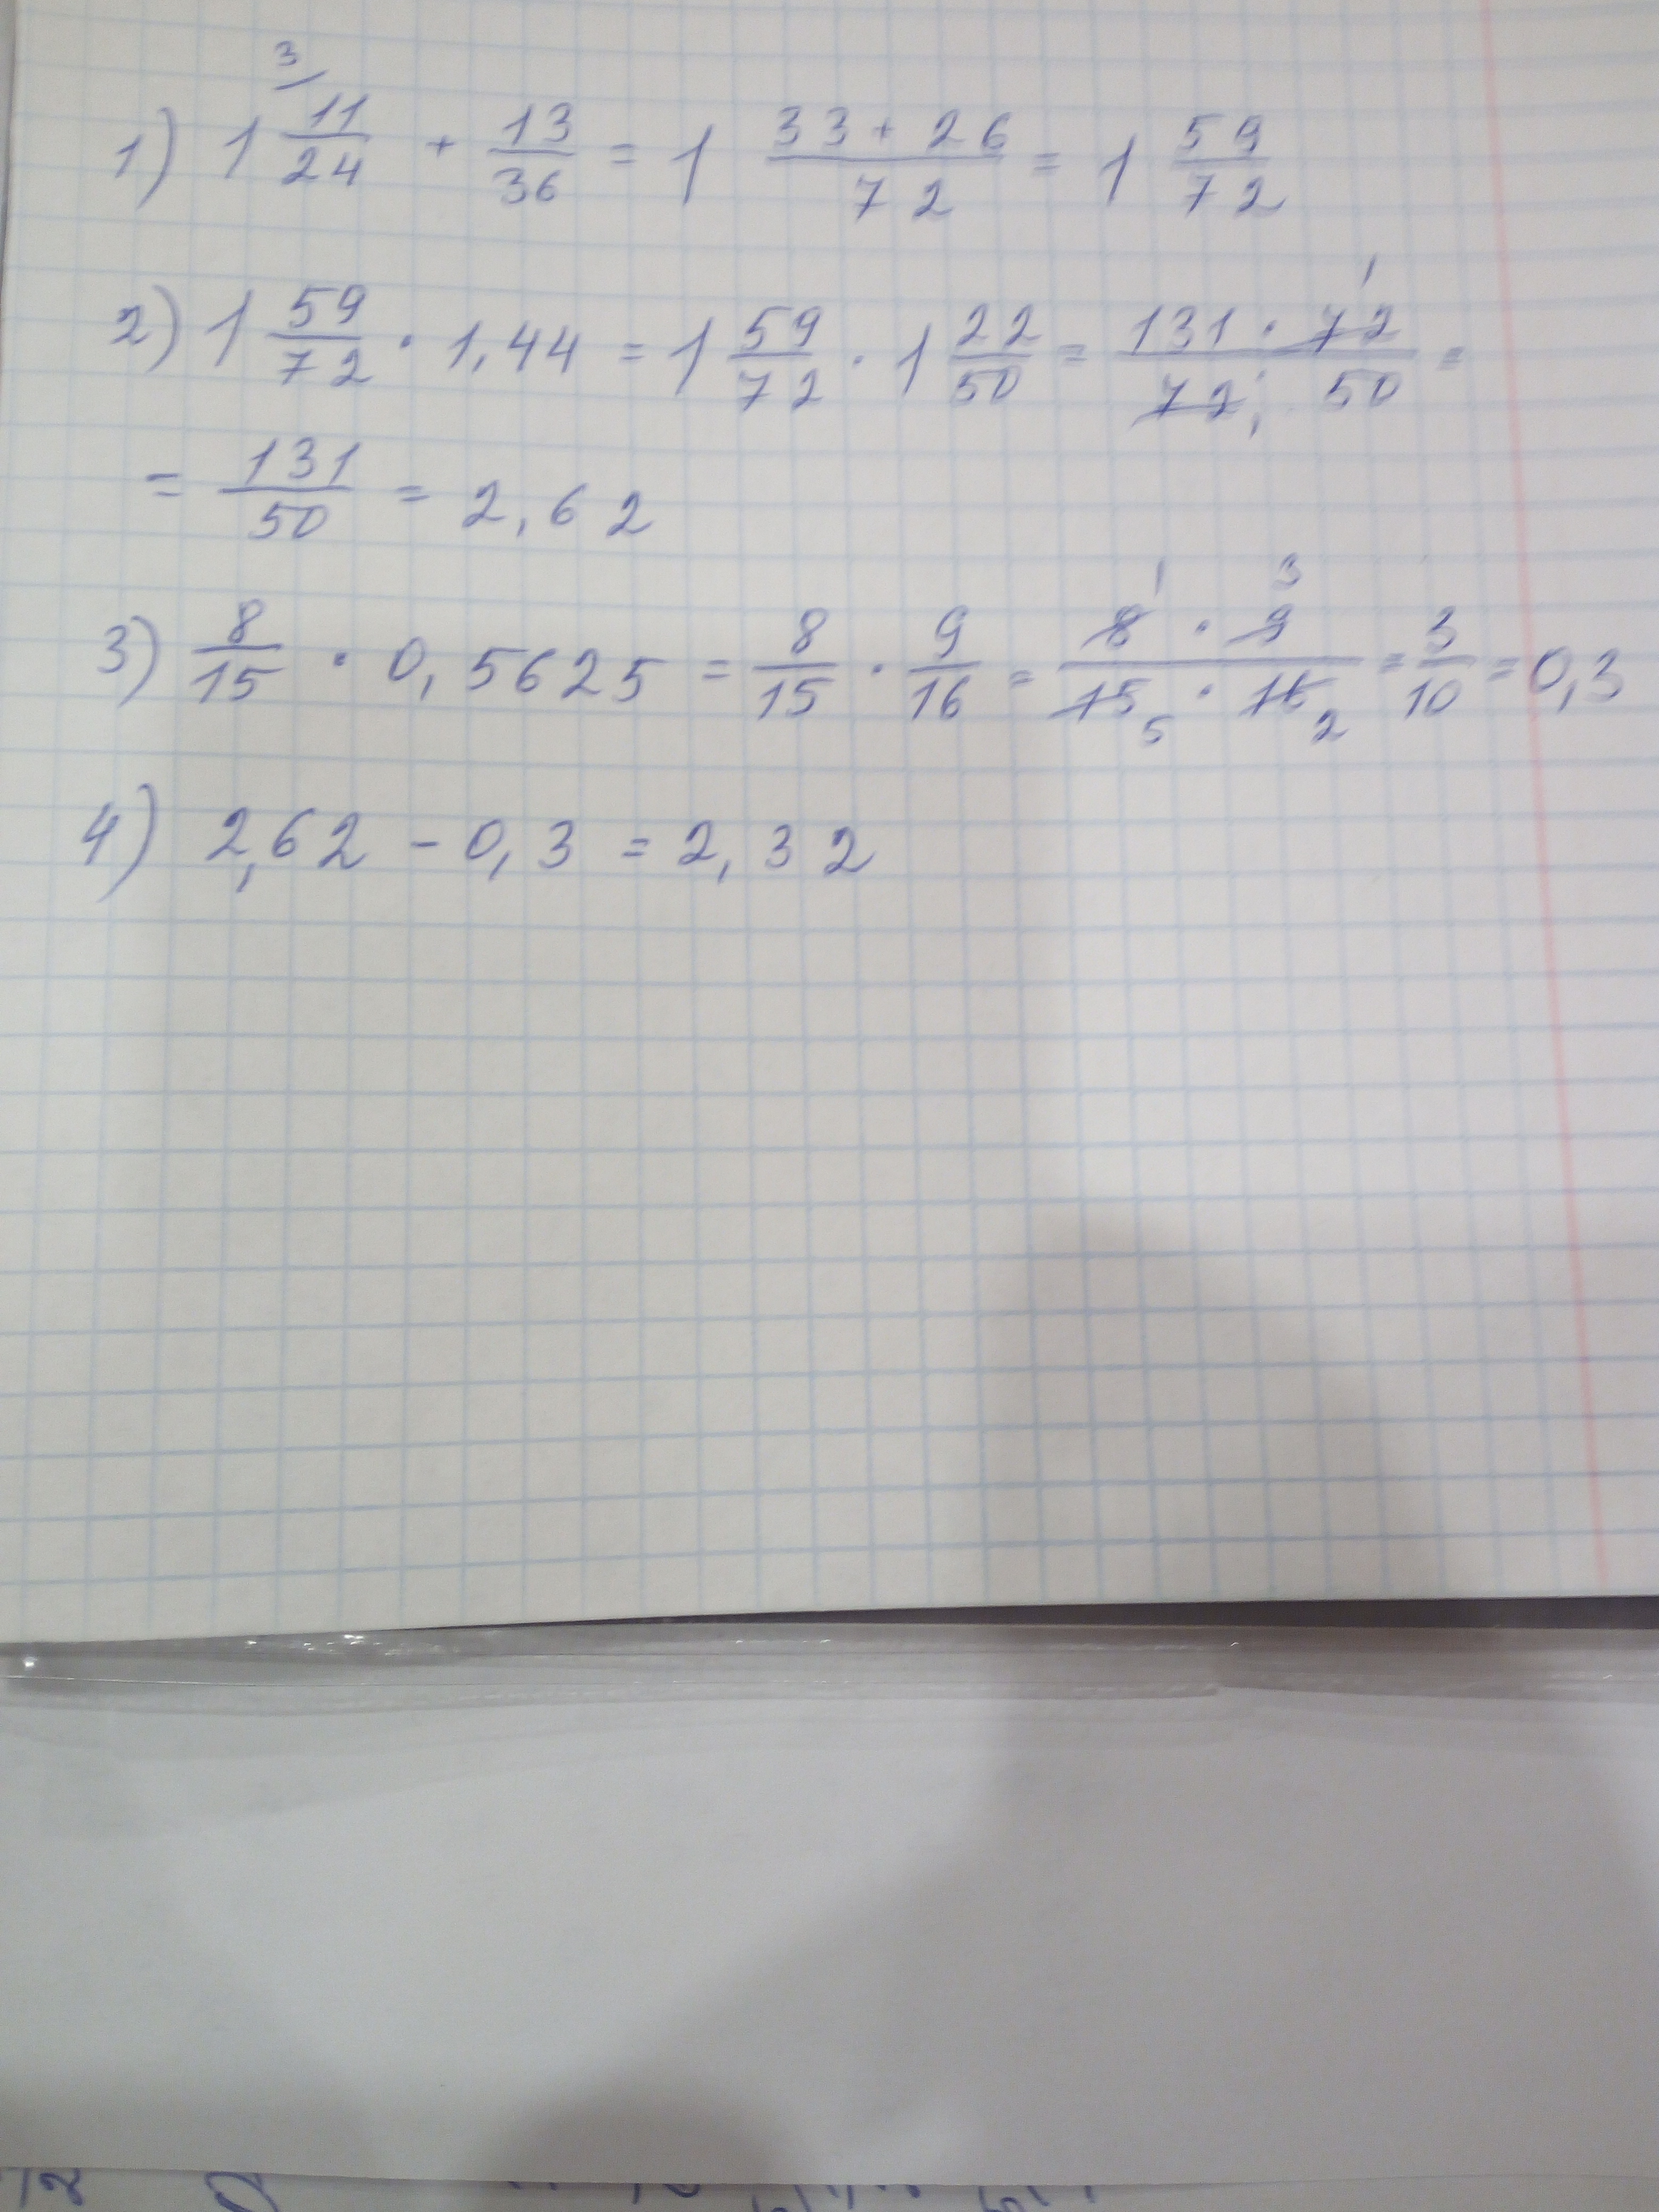 3
1) 1 11/24 + 13/36 = 1 33+26/72 = 1 59/72
2) 1 59/72 · 1,44 = 1 59/72 · 1 22/50 = 131 · 72 1/72 1 · 50 =
= 131/50 = 2,62
3) 8/15 · 0,5625 = 8/15 · 9/16 = 8 1 · 9 3/15 5 · 16 2 = 3/10 = 0,3
4) 2,62 - 0,3 = 2,32